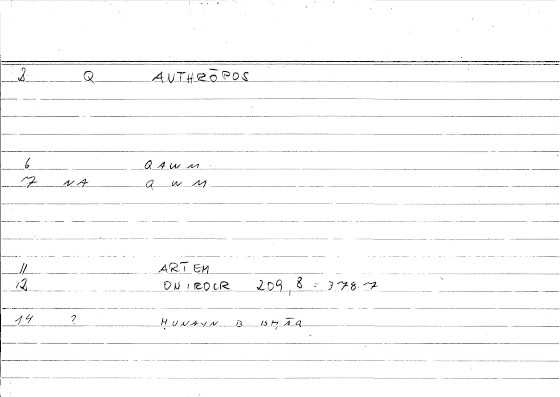 2 Q AVTHRŌPOS
6 QAWM
7 NA QWM
11 ARTEM
12 ONIROCR 209,8 = 378.7
14 ? ḤUNAYN B ISHĀQ